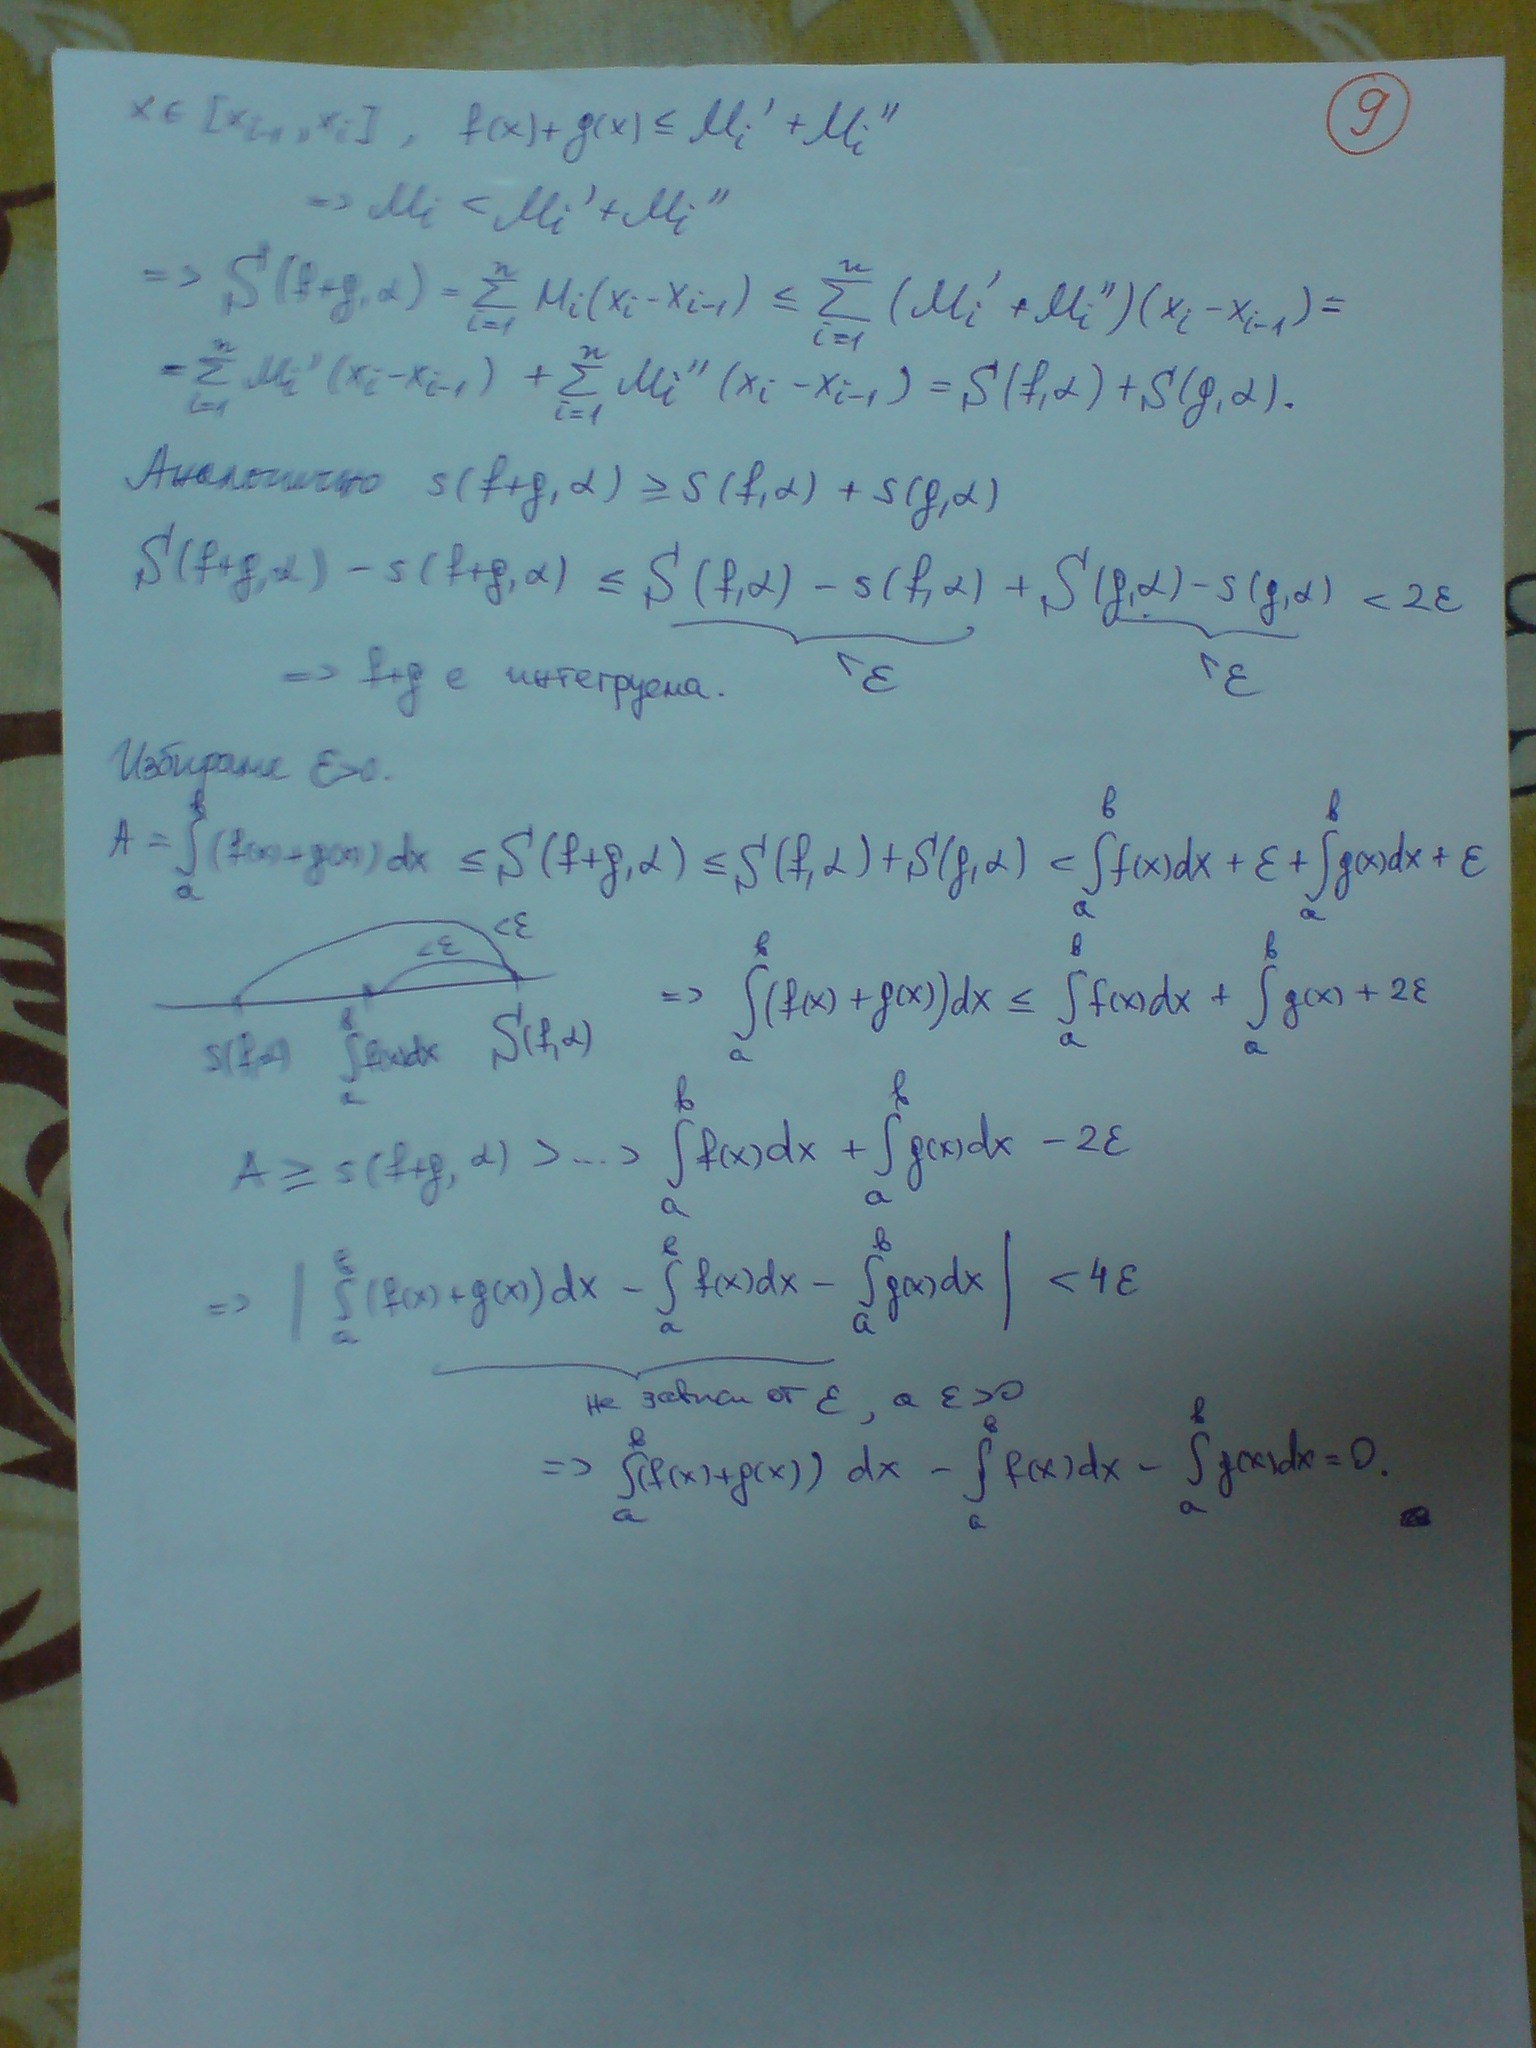 9
x ∈ [x_{i-1}, x_i], f(x)+g(x) ≤ M_i' + M_i''
=> M_i < M_i' + M_i''
=> S(f+g, α) = ∑_{i=1}^{n} M_i(x_i - x_{i-1}) ≤ ∑_{i=1}^{n} (M_i' + M_i'')(x_i - x_{i-1}) =
= ∑_{i=1}^{n} M_i' (x_i - x_{i-1}) + ∑_{i=1}^{n} M_i'' (x_i - x_{i-1}) = S(f, α) + S(g, α).
Аналогично s(f+g, α) ≥ s(f, α) + s(g, α)
S(f+g, α) - s(f+g, α) ≤ S(f, α) - s(f, α) + S(g, α) - s(g, α) < 2ε
<ε <ε
=> f+g е интегруема.
Избираме ε>0.
A = ∫_a^b (f(x)+g(x)) dx ≤ S(f+g, α) ≤ S(f, α) + S(g, α) < ∫_a^b f(x)dx + ε + ∫_a^b g(x)dx + ε
<ε
<ε
s(f, α) ∫_a^b f(x)dx S(f, α)
=> ∫_a^b (f(x)+g(x))dx ≤ ∫_a^b f(x)dx + ∫_a^b g(x) + 2ε
A ≥ s(f+g, α) > ... > ∫_a^b f(x)dx + ∫_a^b g(x)dx - 2ε
=> | ∫_a^b (f(x)+g(x))dx - ∫_a^b f(x)dx - ∫_a^b g(x)dx | < 4ε
не зависи от ε, а ε>0
=> ∫_a^b (f(x)+g(x)) dx - ∫_a^b f(x)dx - ∫_a^b g(x)dx = 0.